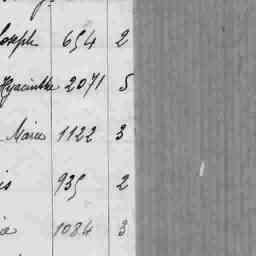 Joseph 654 2
Hyacinthe 2071 5
Marie 1122 3
is 935 2
ie 1084 3